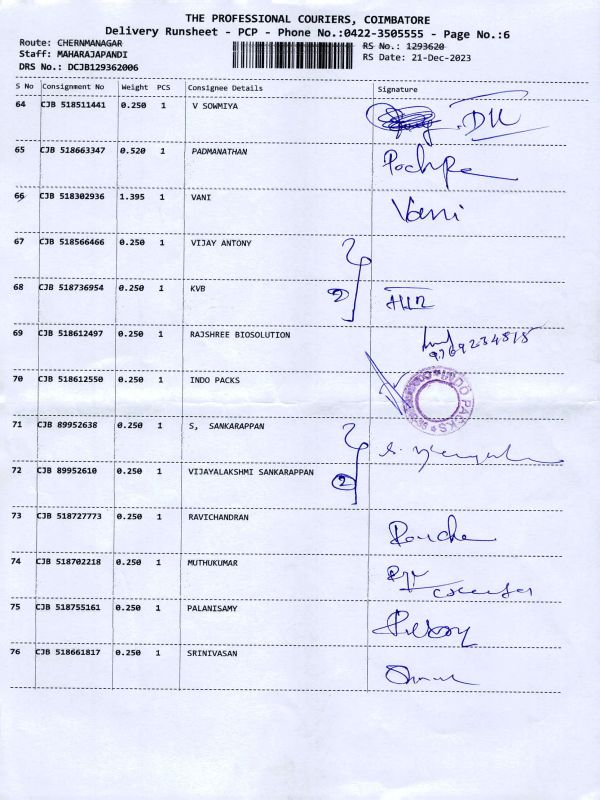 THE PROFESSIONAL COURIERS, COIMBATORE
Delivery Runsheet - PCP - Phone No.:0422-3505555 - Page No.:6
Route: CHERNMANAGAR RS No.: 1293620
Staff: MAHARAJAPANDI RS Date: 21-Dec-2023
DRS No.: DCJB129362006
S No Consignment No Weight PCS Consignee Details Signature
64 CJB 518511441 0.250 1 V SOWMIYA
65 CJB 518663347 0.520 1 PADMANATHAN
66 CJB 518302936 1.395 1 VANI Vani
67 CJB 518566466 0.250 1 VIJAY ANTONY
68 CJB 518736954 0.250 1 KVB 2
69 CJB 518612497 0.250 1 RAJSHREE BIOSOLUTION
70 CJB 518612550 0.250 1 INDO PACKS INDO PACKS
71 CJB 89952638 0.250 1 S, SANKARAPPAN
72 CJB 89952610 0.250 1 VIJAYALAKSHMI SANKARAPPAN 2
73 CJB 518727773 0.250 1 RAVICHANDRAN
74 CJB 518702218 0.250 1 MUTHUKUMAR
75 CJB 518755161 0.250 1 PALANISAMY
76 CJB 518661817 0.250 1 SRINIVASAN